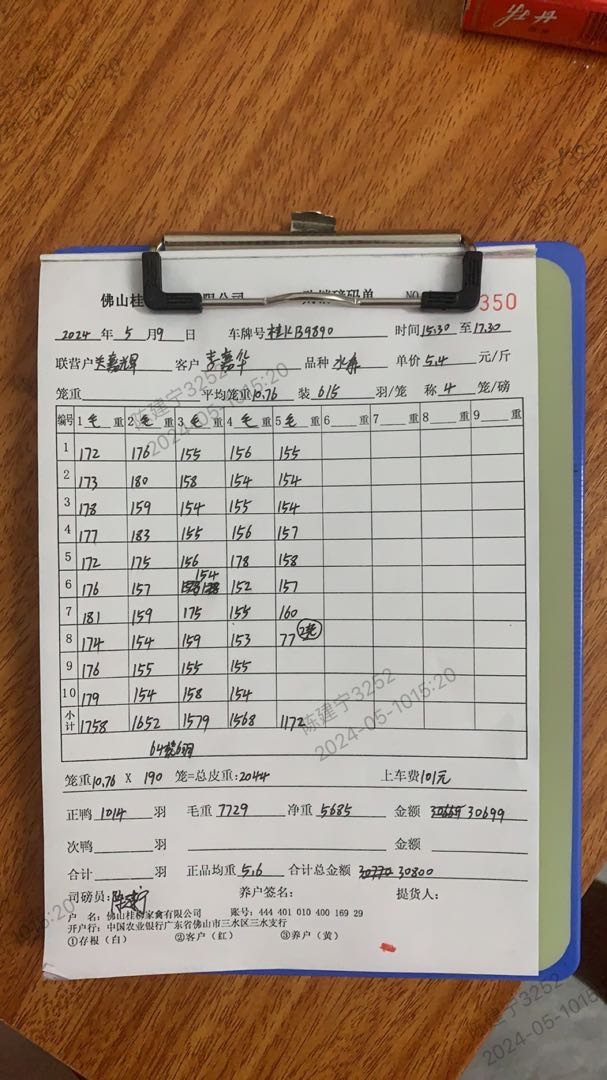 佛山桂 限公司 购销磅码单 NO 350
2024 年 5 月 9 日 车牌号 桂KB9890 时间 15.30 至 17.30
联营户 嘉辉 客户 李嘉华 品种 单价 5.4 元/斤
笼重 平均笼重 10.76 装 6/5 羽/笼 称 4 笼/磅
编号 1 毛 重 2 毛 重 3 毛 重 4 毛 重 5 毛 重 6 重 7 重 8 重 9 重
1 172 176 155 156 155
2 173 180 158 154 154
3 178 159 154 155 154
4 177 183 155 156 157
5 172 175 156 178 158
6 176 157 154 152 157
7 181 159 175 155 160
8 174 154 159 153 77 2笼
9 176 155 155 155
10 179 154 158 154
小计 1758 1652 1579 1568 1172
64笼6羽
笼重 10.76 X 190 笼=总皮重: 2044 上车费 101元
正鸭 1014 羽 毛重 7729 净重 5685 金额 30699
次鸭 羽 金额
合计 羽 正品均重 5.6 合计总金额 30800
司磅员: 陈建宁 养户签名: 提货人:
户 名: 佛山桂柳家禽有限公司 账号: 444 401 010 400 169 29
开户行: 中国农业银行广东省佛山市三水区三水支行
①存根（白） ②客户（红） ③养户（黄）
陈建宁3252
2024-05-10 15:20